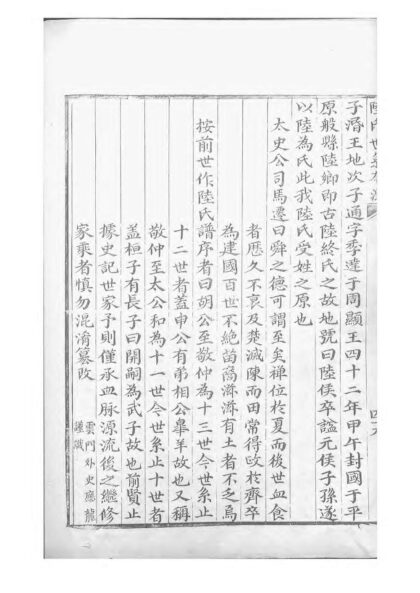 陸氏世系
子湣王地次子通字季逵于周顯王四十二年甲午封國于平
原般縣陸鄉即古陸終氏之故地號曰陸侯卒諡元侯子孫遂
以陸為氏此我陸氏受姓之原也
太史公司馬遷曰舜之德可謂至矣禪位於夏而後世血食
者歷久不衰及楚滅陳而田常得政於齊卒
為建國百世不絕苗裔濟濟有土者不乏焉
按前世作陸氏譜序者曰胡公至敬仲為十三世今世系止
十二世者蓋申公有弟相公臯羊故也又稱
敬仲至太公和為十一世今世系止十世者
蓋桓子有長子曰開嗣為武子故也前賢止
據史記世家予則僅承血脉源流後之繼修
家乘者慎勿混淆篡改
雲門外史應龍
謹識